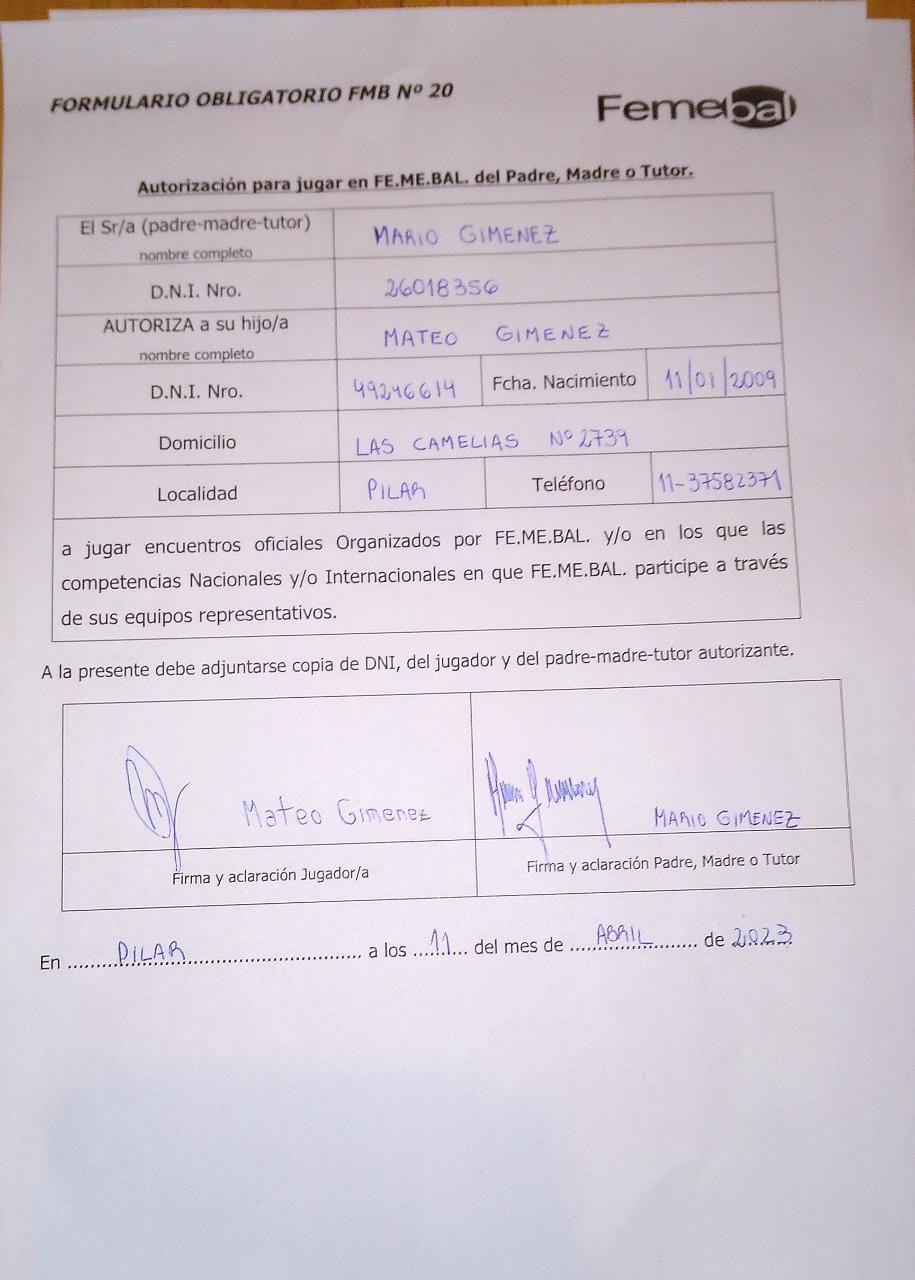 FORMULARIO OBLIGATORIO FMB Nº 20
Femebal
Autorización para jugar en FE.ME.BAL. del Padre, Madre o Tutor.
El Sr/a (padre-madre-tutor)
nombre completo
MARIO GIMENEZ
D.N.I. Nro.
26018356
AUTORIZA a su hijo/a
nombre completo
MATEO GIMENEZ
D.N.I. Nro.
49246614
Fcha. Nacimiento
11/01/2009
Domicilio
LAS CAMELIAS Nº 2739
Localidad
PILAR
Teléfono
11-37582371
a jugar encuentros oficiales Organizados por FE.ME.BAL. y/o en los que las
competencias Nacionales y/o Internacionales en que FE.ME.BAL. participe a través
de sus equipos representativos.
A la presente debe adjuntarse copia de DNI, del jugador y del padre-madre-tutor autorizante.
Mateo Gimenez
MARIO GIMENEZ
Firma y aclaración Jugador/a
Firma y aclaración Padre, Madre o Tutor
En PILAR a los 11 del mes de ABRIL de 2023